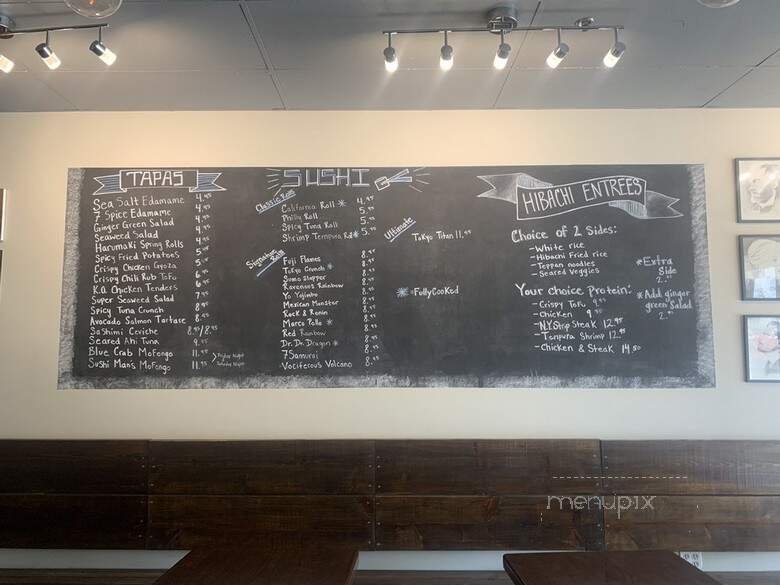 TAPAS
Sea Salt Edamame 4.95
7 Spice Edamame 4.95
Ginger Green Salad 4.95
Seaweed Salad 4.95
Harumaki Spring Rolls
Spicy Fried Potatoes
Crispy Chicken Gyoza
Crispy Chili Rub Tofu
K.O. Chicken Tenders
Super Seaweed Salad
Spicy Tuna Crunch
Avocado Salmon Tartare
Sashimi Ceviche
Seared Ahi Tuna
Blue Crab Mofongo 11.95
Sushi Man's Mofongo 11.95
Friday Night
Saturday Night
SUSHI
Classic Roll
California Roll * 4.95
Philly Roll 5.95
Spicy Tuna Roll 5.95
Shrimp Tempura Roll * 5.95
Signature Rolls
Fuji Flames 8.95
Tokyo Crunch * 8.95
Sumo Stopper 8.95
Ravenous Rainbow 8.95
Yo Yojimbo 8.95
Mexican Monster 8.95
Rock & Ronin 8.95
Marco Tollo * 8.95
Red Rainbow 8.95
Dr. Dr. Dragon * 8.95
7 Samurai 8.95
Vociferous Volcano 8.95
Ultimate
Tokyo Titan 11.95
* =Fully Cooked
HIBACHI ENTREES
Choice of 2 Sides:
-White rice
-Hibachi Fried rice
-Teppan noodles
-Seared Veggies
*Extra Side 2.00
Your choice Protein:
-Crispy Tofu 9.95
-Chicken 9.50
-NY Strip Steak 12.95
-Tempura Shrimp 12.95
-Chicken & Steak 14.50
*Add ginger
green Salad
2.95
menupix